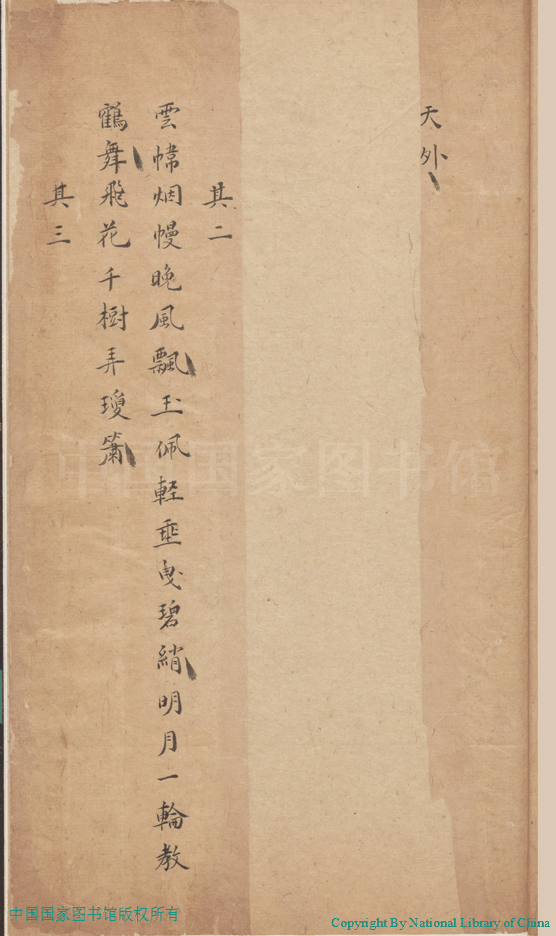 天外
其二
雲幃烟幔晚風飄玉佩軽垂曳碧綃明月一輪教
鶴舞飛花千樹弄瓊簫
其三
中国国家图书馆
中国国家图书馆版权所有
Copyright By National Library of China